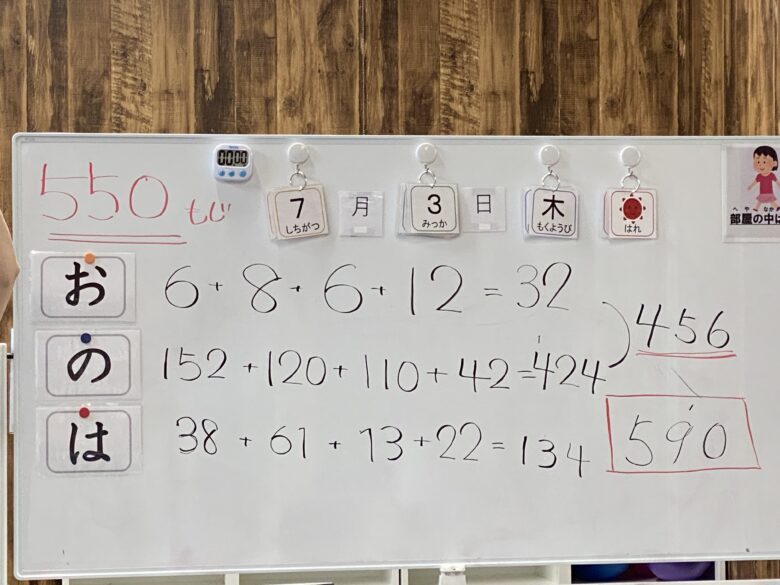 10:00
550 もじ
7 しちがつ 月 3 みっか 日 木 もくようび はれ
へや なか
部屋の中は
お 6+8+6+12=32
の 152+120+110+42=424
456
は 38+61+13+22=134
590